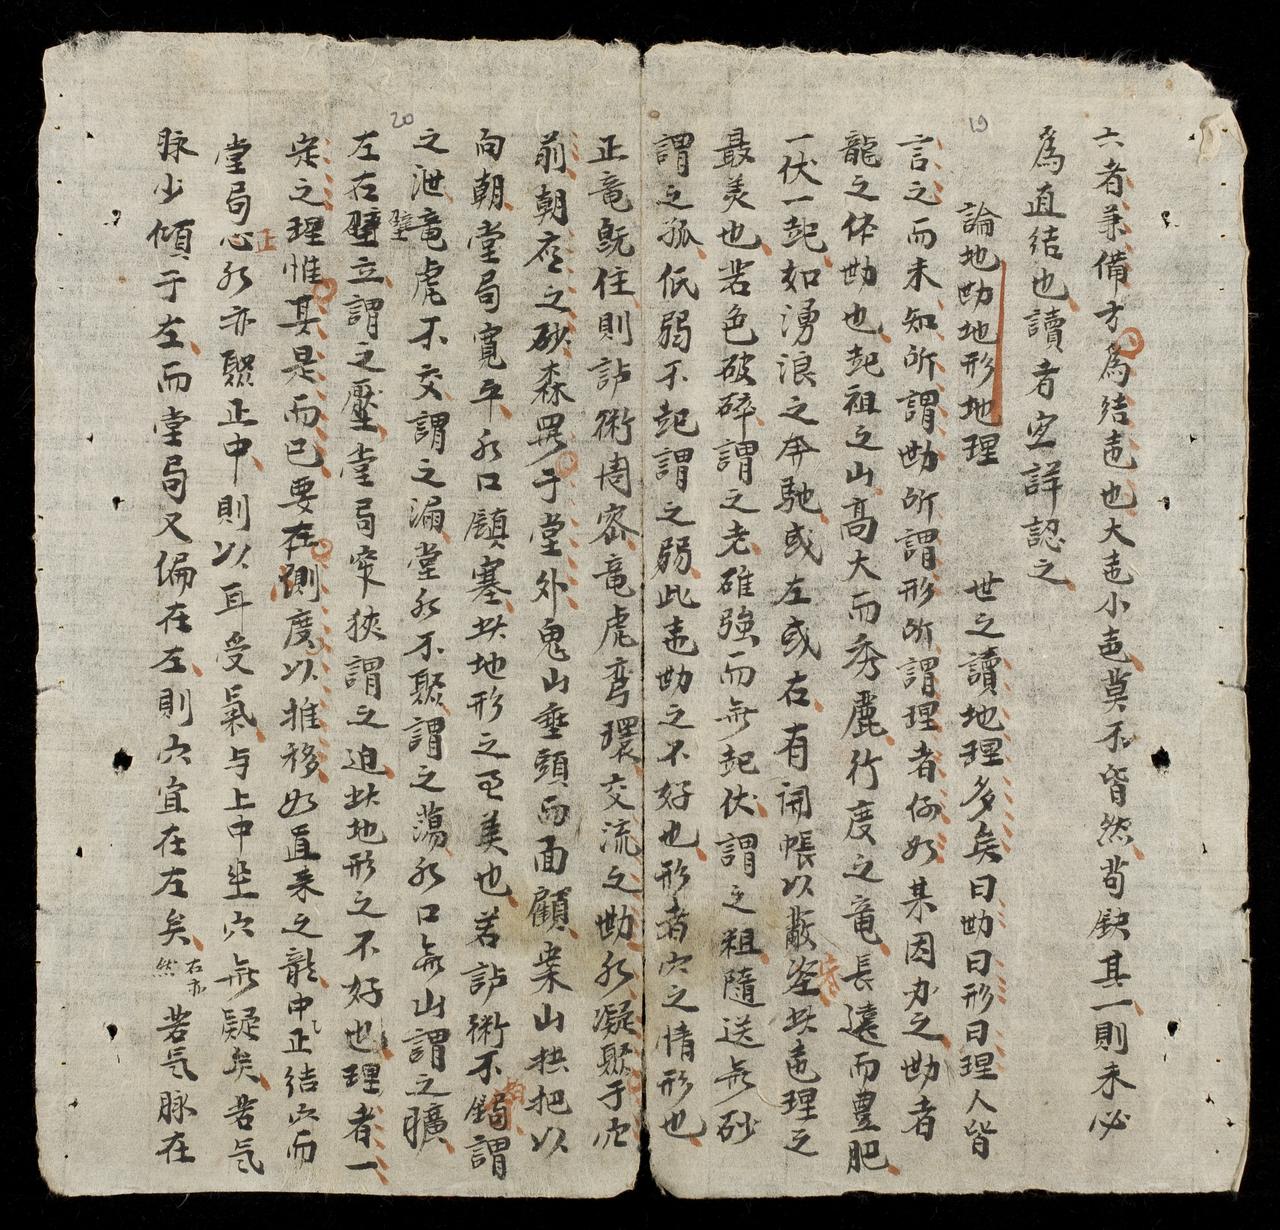 六者兼備方為結竜也大竜小竜莫不皆然苟缺其一則未必
為直結也讀者宜詳認之
論地勘地形地理 世之讀地理多矣曰勘曰形曰理人皆
19
言之而未知所謂勘所謂形所謂理者何如某因办之勘者
龍之体勘也起祖之山高大而秀麗行度之竜長遠而豊肥
一伏一起如湧浪之奔馳或左或右有開帳以蔽芘此竜理之
最美也若色破碎謂之老碓強而無起伏謂之粗隨送無砂
謂之孤低弱不起謂之弱此竜勘之不好也形者穴之情形也
正竜既住則訬術周密竜虎弯環交流之勘水凝聚于穴
前朝應之砂森羅于堂外鬼山垂頭而面顧案山拱把以
向朝堂局寬平水口顧塞此地形之至美也若訬術不鎸謂
20
之泄竜虎不交謂之漏堂水不聚謂之蕩水口無山謂之曠
左右壁立謂之壓堂局窄狹謂之迫此地形之不好也理者一
壁
定之理惟其是而已要在側度以推移如直来之龍中正結穴而
堂局心水亦聚正中則以耳受氣与上中坐穴無疑矣若气
正
脉少傾于左而堂局又偏在左則穴宜在左矣 右亦然 若气脉在